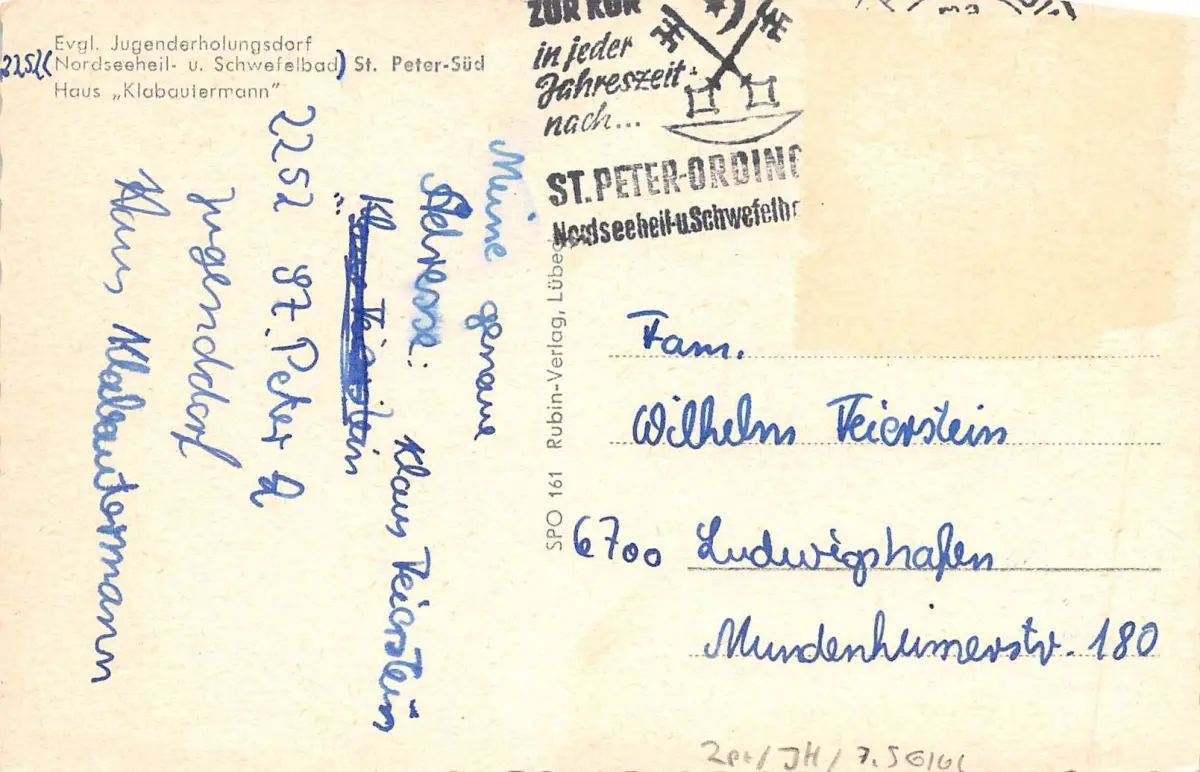 Evgl. Jugenderholungsdorf
2252 (Nordseeheil- u. Schwefelbad) St. Peter-Süd
Haus „Klabautermann"
ZUR KUR
in jeder
Jahreszeit
nach...
ST. PETER-ORDING
Nordseeheil-u.Schwefelb
Meine genaue
Adresse:
Klaus Feierstein
2252 St. Peter
Jugenddorf
Haus Klabautermann
SPO 161 Rubin-Verlag, Lübec
Fam.
Wilhelm Feierstein
6700 Ludwigshafen
Mundenheimerstr. 180